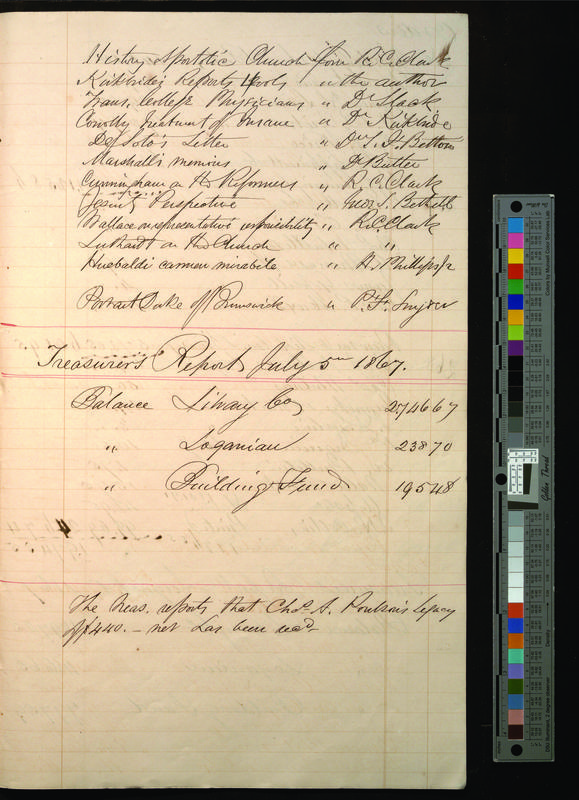 History Apostolic Church from R. C. Clark
Kirkbride's Reports 4 vols " the author
Trans. College Physicians " Dr Slack
Conolly treatment of Insane " Dr Kirkbride
De Soto's Letter " Dr
Marshall's memoirs " Dr Butler
Cunningham on the Reformers " R. C. Clark
Jesuits Perspective
Wallace representative responsibility " R C Clark
on the Church " "
Hucbaldi carmen mirabile " H. Phillips Jr
Portrait Duke of Brunswick " Snyder
Treasurer's Report July 5th 1867.
Balance Library Co 2,746 67
" Loganian 238 70
" Building Fund 195 48
The Treas. reports that Chas. A. Poulson's Legacy
of $440. – net has been recd